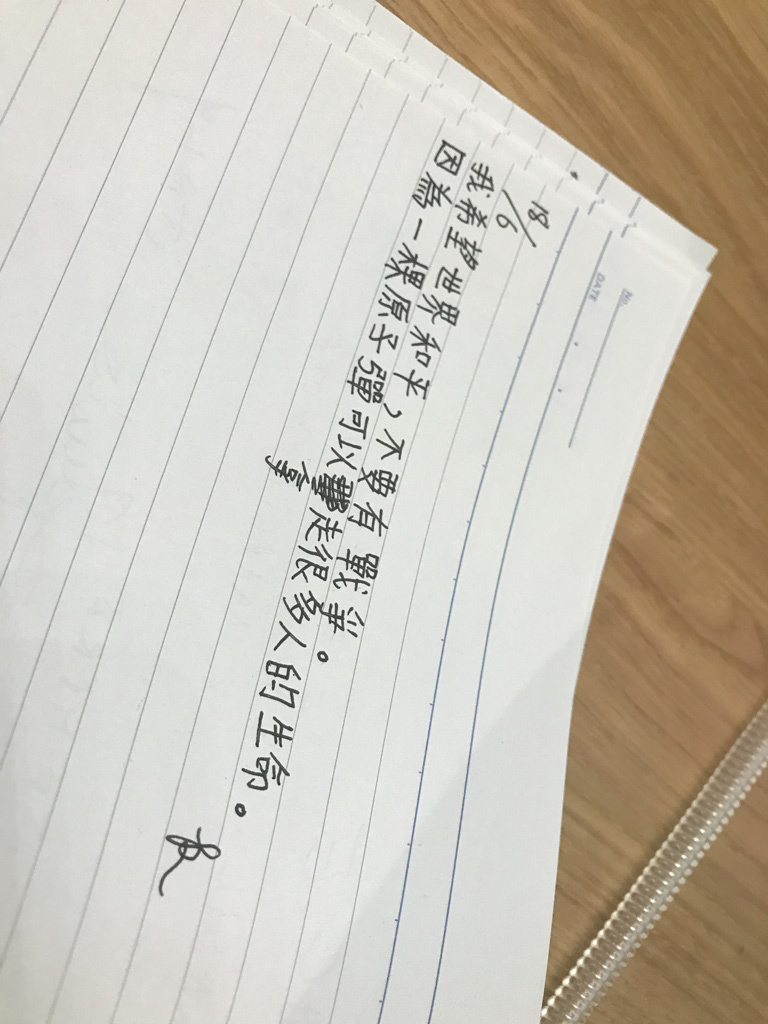 NO.
DATE
18/6
我希望世界和平，不要有戰爭。
因為一棵原子彈可以奪走很多人的生命。